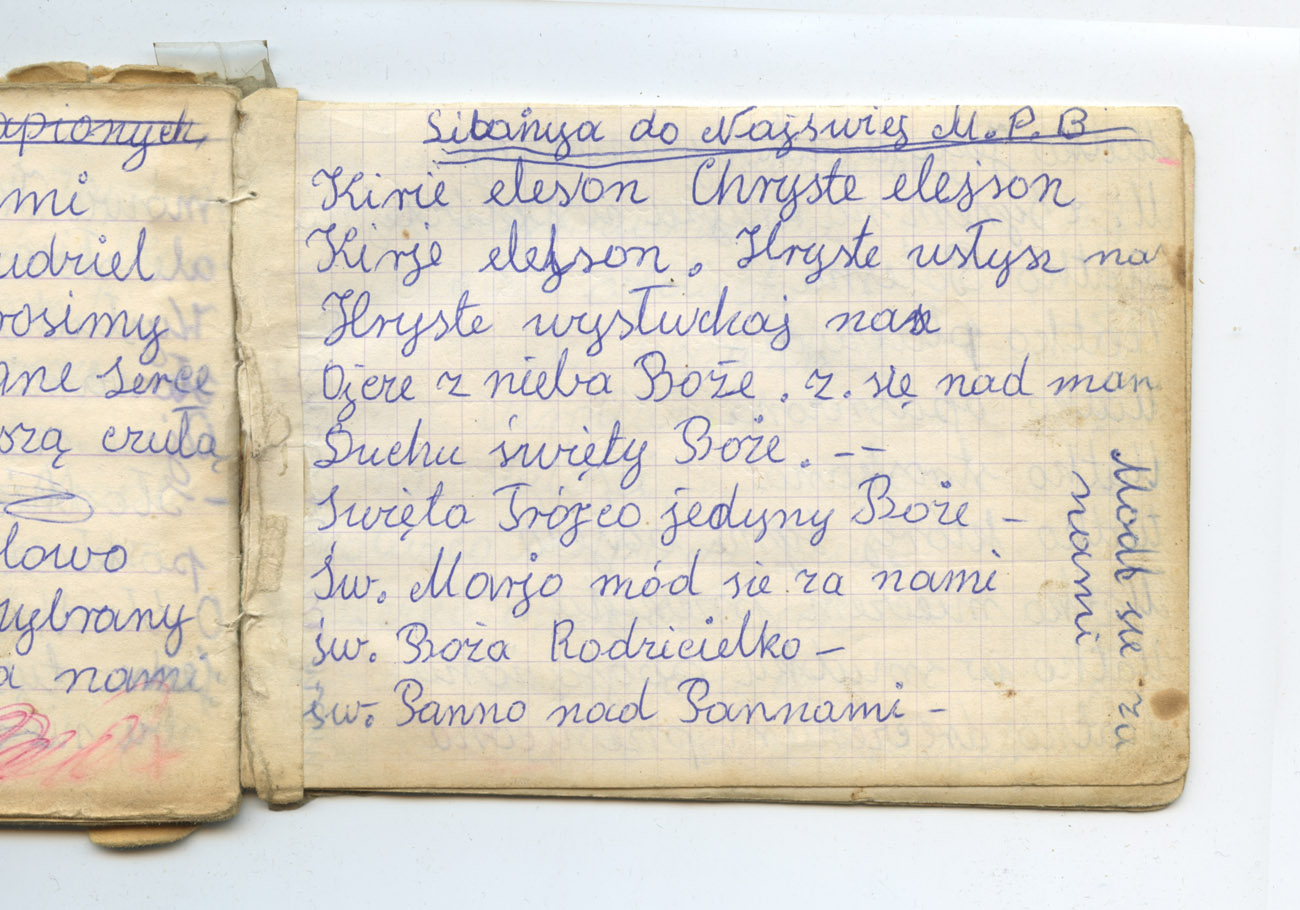 apionych
ami
udziel
rosimy
ane serce
szą czułą
łowo
wybrany
a nami
Litanya do Najswięs M.P.B
Kirie eleson Chryste elejson
Kirje elejson. Hryste usłysz nas
Hryste wysłuchaj nas
Ojcze z nieba Boże. z. się nad man
Duchu święty Boże. --
Swięta Trójco jedyny Boże -
Św. Marjo mód sie za nami
św. Boża Rodzicielko -
św. Panno nad Pannami -
Modl sie za
nami